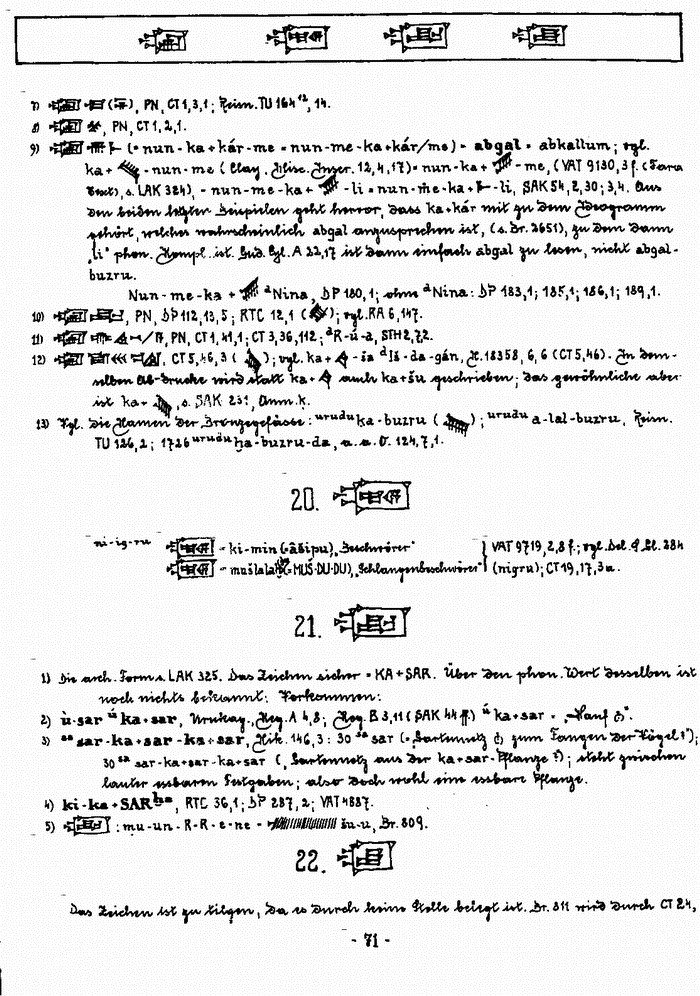 7) (), PN, CT 1,3,1; Reisn. TU 164¹², 14.
8) , PN, CT 1,2,1.
9) (= nun-ka+kár-me = nun-me-ka+kár/me) = abgal = abkallum; vgl.
ka+ -nun-me (Clay, Misc. Inscr. 12,4,17) = nun-ka+ -me, (VAT 9130,3 f. (Fara
Text), s. LAK 324), = nun-me-ka+ -li = nun-me-ka+ -li, SAK 54, 2,30; 3,4. Aus
den beiden letzten Beispielen geht hervor, dass ka+kár mit zu dem Ideogramm
gehört, welches wahrscheinlich abgal anzusprechen ist, (s. Br. 2651), zu dem dann
"li" phon. Kompl. ist. Gud. Cyl. A 22,17 ist dann einfach abgal zu lesen, nicht abgal-
buzru.
Nun-me-ka+ ᵈNina, DP 180,1; ohne ᵈNina: DP 183,1; 185,1; 186,1; 189,1.
10) , PN, DP 112,13,5; RTC 12,1 (); vgl. RA 6,147.
11) , PN, CT 1,41,1; CT 3,36,112; ᵈR-ú-a, STH 2,72.
12) , CT 5,46,3 (); vgl. ka+ -ša ᵈIš-da-gán, K. 18358, 6,6 (CT 5,46). In dem-
selben Ab-drucke wird statt ka+ auch ka+šu geschrieben; das gewöhnliche aber
ist ka+ , s. SAK 231, Anm. k.
13) Vgl. die Namen der Bronzegefässe: ᵘʳᵘᵈᵘka-buzru (); ᵘʳᵘᵈᵘa-lal-buzru, Reisn.
TU 126,2; 1726 ᵘʳᵘᵈᵘḫa-buzru-da, a.a.O. 124,7,1.
20.
ni-ig-ru = ki-min (=āšipu), "Beschwörer" VAT 9719, 2,8 f.; vgl. Del. S. Gl. 284
= mušlalaḫ (=MUŠ·DU·DU), "Schlangenbeschwörer" (nigru); CT 19,17,3a.
21.
1) Die arch. Form s. LAK 325. Das Zeichen sicher = KA+SAR. Über den phon. Wert desselben ist
noch nichts bekannt. Vorkommen:
2) ù-sar ᵘka+sar, Urukag., Keg. A 4,8; Keg. B 3,11 (SAK 44 ff.) ᵘka+sar = "Hanf (?)".
3) ˢᵃsar-ka+sar-ka+sar, Nik. 146,3: 30 ˢᵃsar (="Gartennetz (?) zum Fangen der Vögel?");
30 ˢᵃsar-ka+sar-ka+sar ("Gartennetz aus der ka+sar-Pflanze?); steht zwischen
lauter essbaren Festgaben; also doch wohl eine essbare Pflanze.
4) ki-ka+SARᵇᵃ, RTC 36,1; DP 287,2; VAT 4887.
5) : mu-un-R-R-e-ne = šu-u, Br. 809.
22.
Das Zeichen ist zu tilgen, da es durch keine Stelle belegt ist. Br. 811 wird durch CT 24,
- 71 -